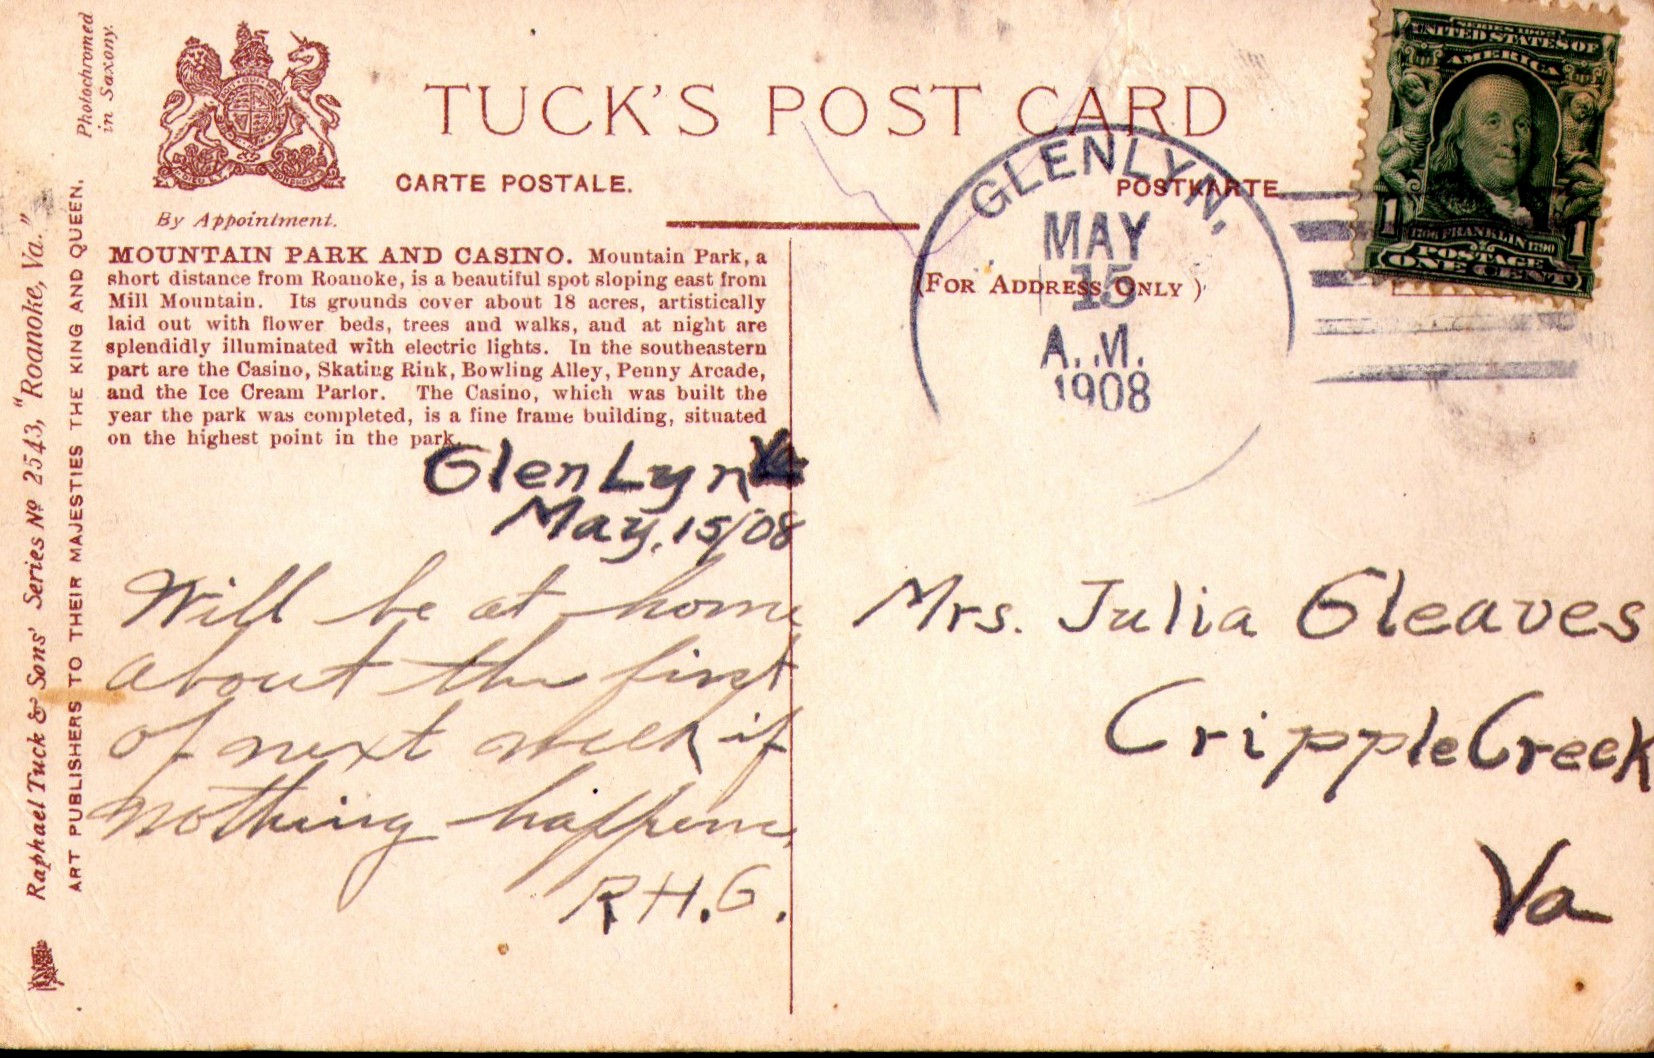 Photochromed
in Saxony.
TUCK'S POST CARD
CARTE POSTALE.
POSTKARTE
By Appointment.
(FOR ADDRESS ONLY)
MOUNTAIN PARK AND CASINO. Mountain Park, a
short distance from Roanoke, is a beautiful spot sloping east from
Mill Mountain. Its grounds cover about 18 acres, artistically
laid out with flower beds, trees and walks, and at night are
splendidly illuminated with electric lights. In the southeastern
part are the Casino, Skating Rink, Bowling Alley, Penny Arcade,
and the Ice Cream Parlor. The Casino, which was built the
year the park was completed, is a fine frame building, situated
on the highest point in the park.
Raphael Tuck & Sons' Series No 2543, "Roanoke, Va."
ART PUBLISHERS TO THEIR MAJESTIES THE KING AND QUEEN.
GLENLYN,
MAY
15
A.M.
1908
SERIES 1902
UNITED STATES OF
AMERICA
1706 FRANKLIN 1790
1 1
POSTAGE
ONE CENT
Glen Lyn Va
May, 15/08
Will be at home
about the first
of next week if
nothing happens,
R.H.G.
Mrs. Julia Gleaves
Cripple Creek
Va